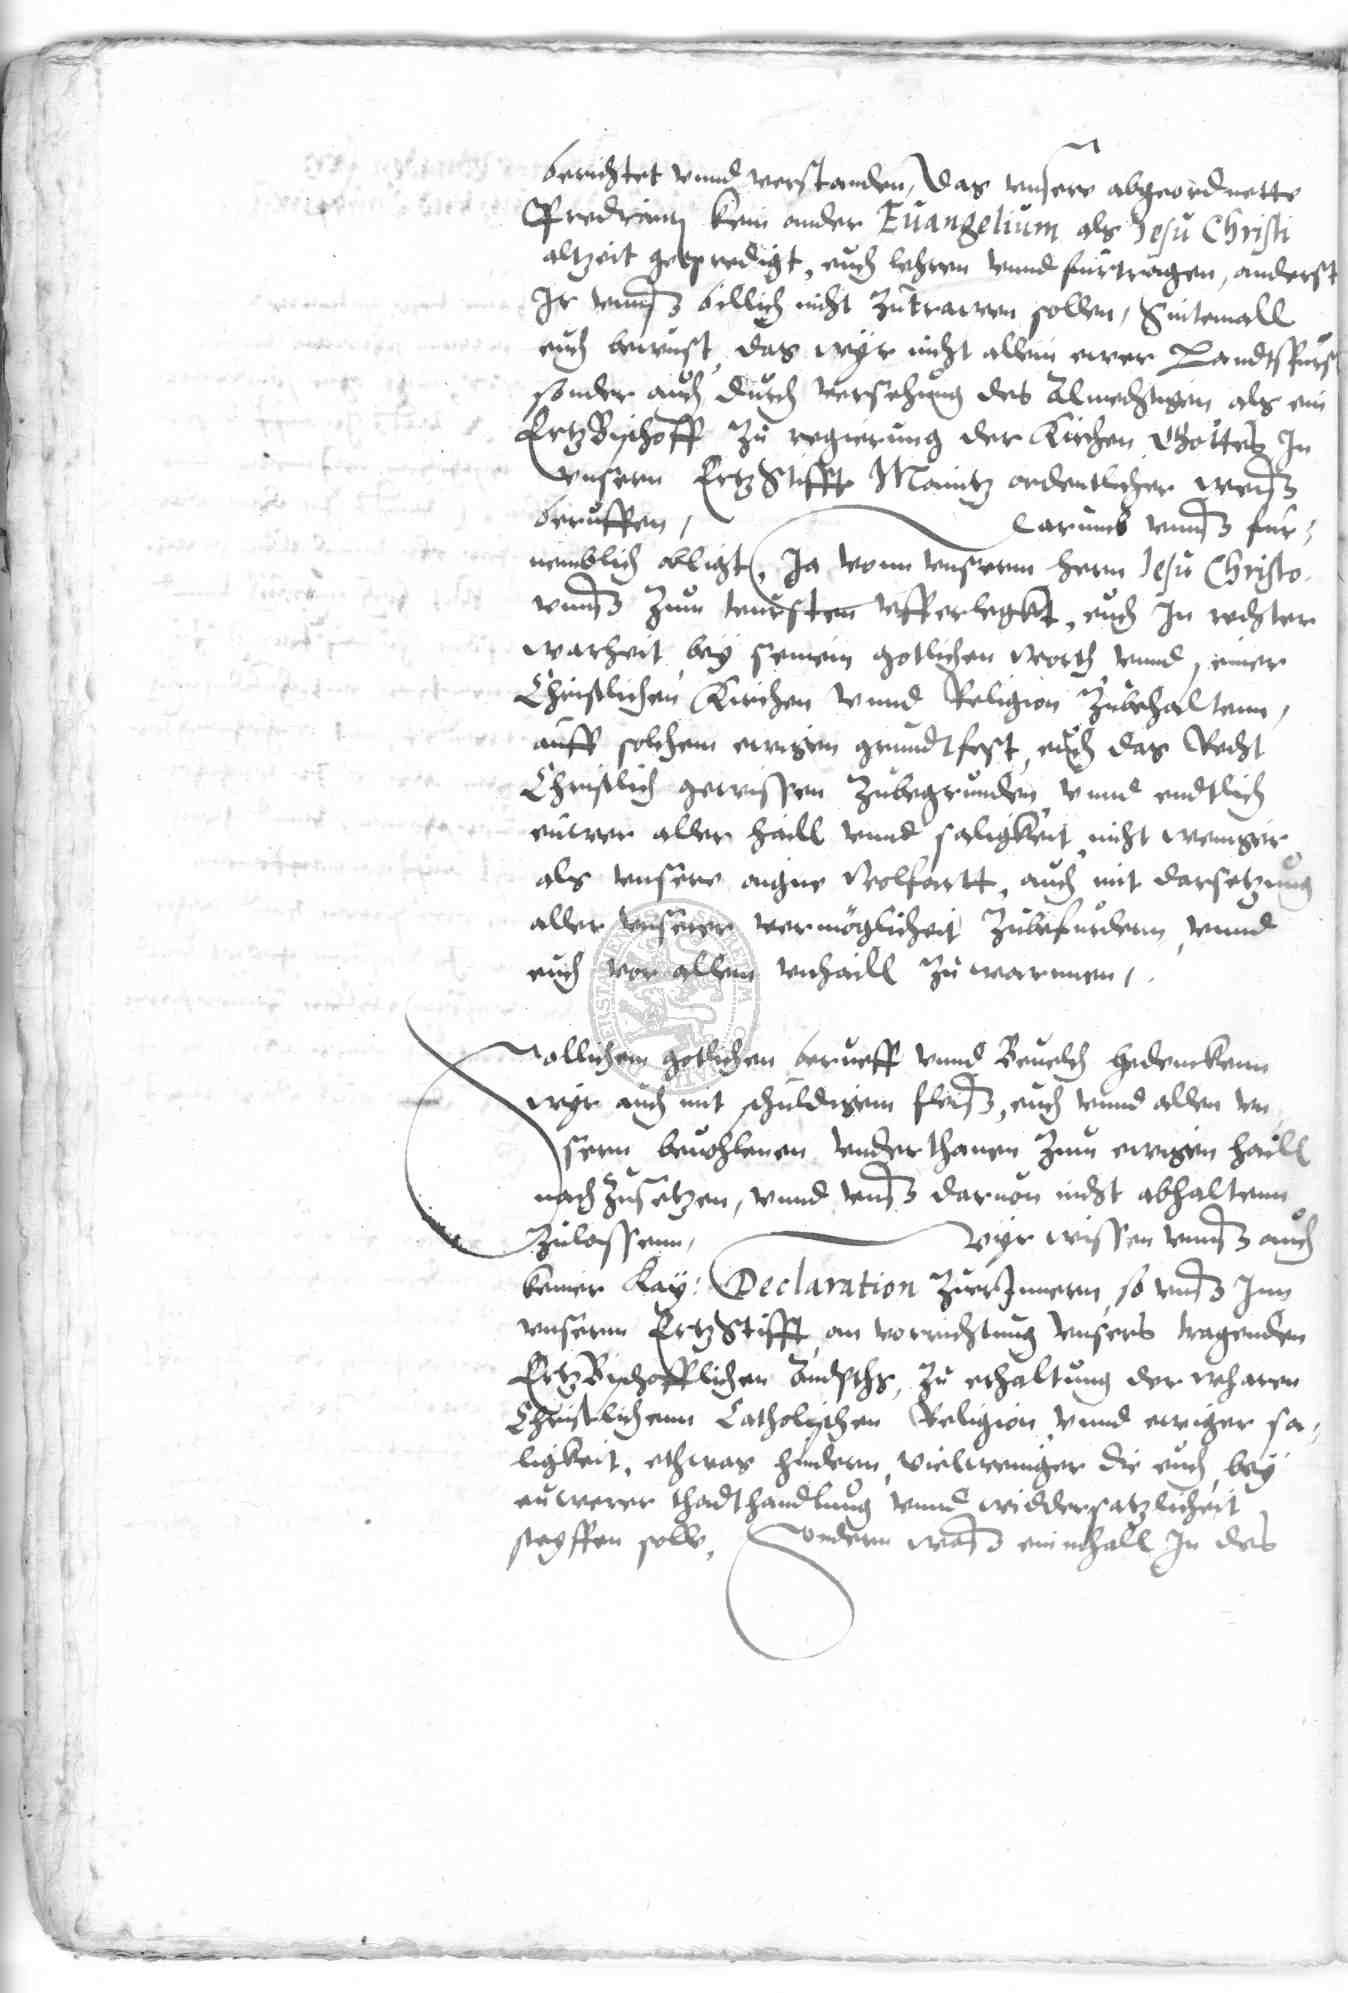 berichtet vnnd verstanden, Das vnsere abgeordnette
Predicantz kein ander Euangelium als Jesu Christi
altzeit gepredigt, euch lehren vnnd furtragen, anderst
Ir vnnß billich nicht zutrawen sollen, Sintemall
euch bewust, das wyr nicht allein ewer Landtsfurst
sonder auch durch versehung des Almechtigen als ein
ErtzBischoff zu regierung der Kirchen Gottes In
vnserm ErtzStifft Maintz ordentlicher weiß
beruffen, Darumb vnnß fur-
nemblich obligt, Ja vonn vnserm herrn Jesu Christo
vnnß zum teursten vfferlegkt, euch In rechter
warheit bey seinem gotlichen worth vnnd einer
Christlichen Kirchen vnnd Religion zubehaltenn,
auff solchem ewigen grundtfest, euch das Recht
Christlich gewissen zubegrunden, vnnd endtlich
euwer aller haill vnnd saligkeit nicht weniger
als vnsere aigne Wolfartt, auch mit darsetzung
aller vnserer vermöglicheit zubefurdern, vnnd
euch vor allem vnhaill zu warnnen,
Sollichem gotlichen berueff vnnd Beuelch gedenckenn
wyr auch mit schuldigem fleiß, euch vnnd allen vn
serm beuohlenen vnderthanen zum ewigen haill
nachzusetzen, vnnd vnnß daruon nicht abhaltenn
zulassenn, Wyr wissen vnnß auch
keiner Kay: Declaration zuerInnern, so vnnß Inn
vnserm ErtzStifft, an vorrichtung vnsers tragenden
ErtzBischofflichen Ampths, zu erhaltung der wharen
Christlichenn Catholischen Religion vnnd ewiger sa-
ligkeit, ethwas hindern, vielweniger die euch, bey
euwerer thadthandlung vnnd widdersatzlicheit
steyffen solle, Sondern was einmhall In des